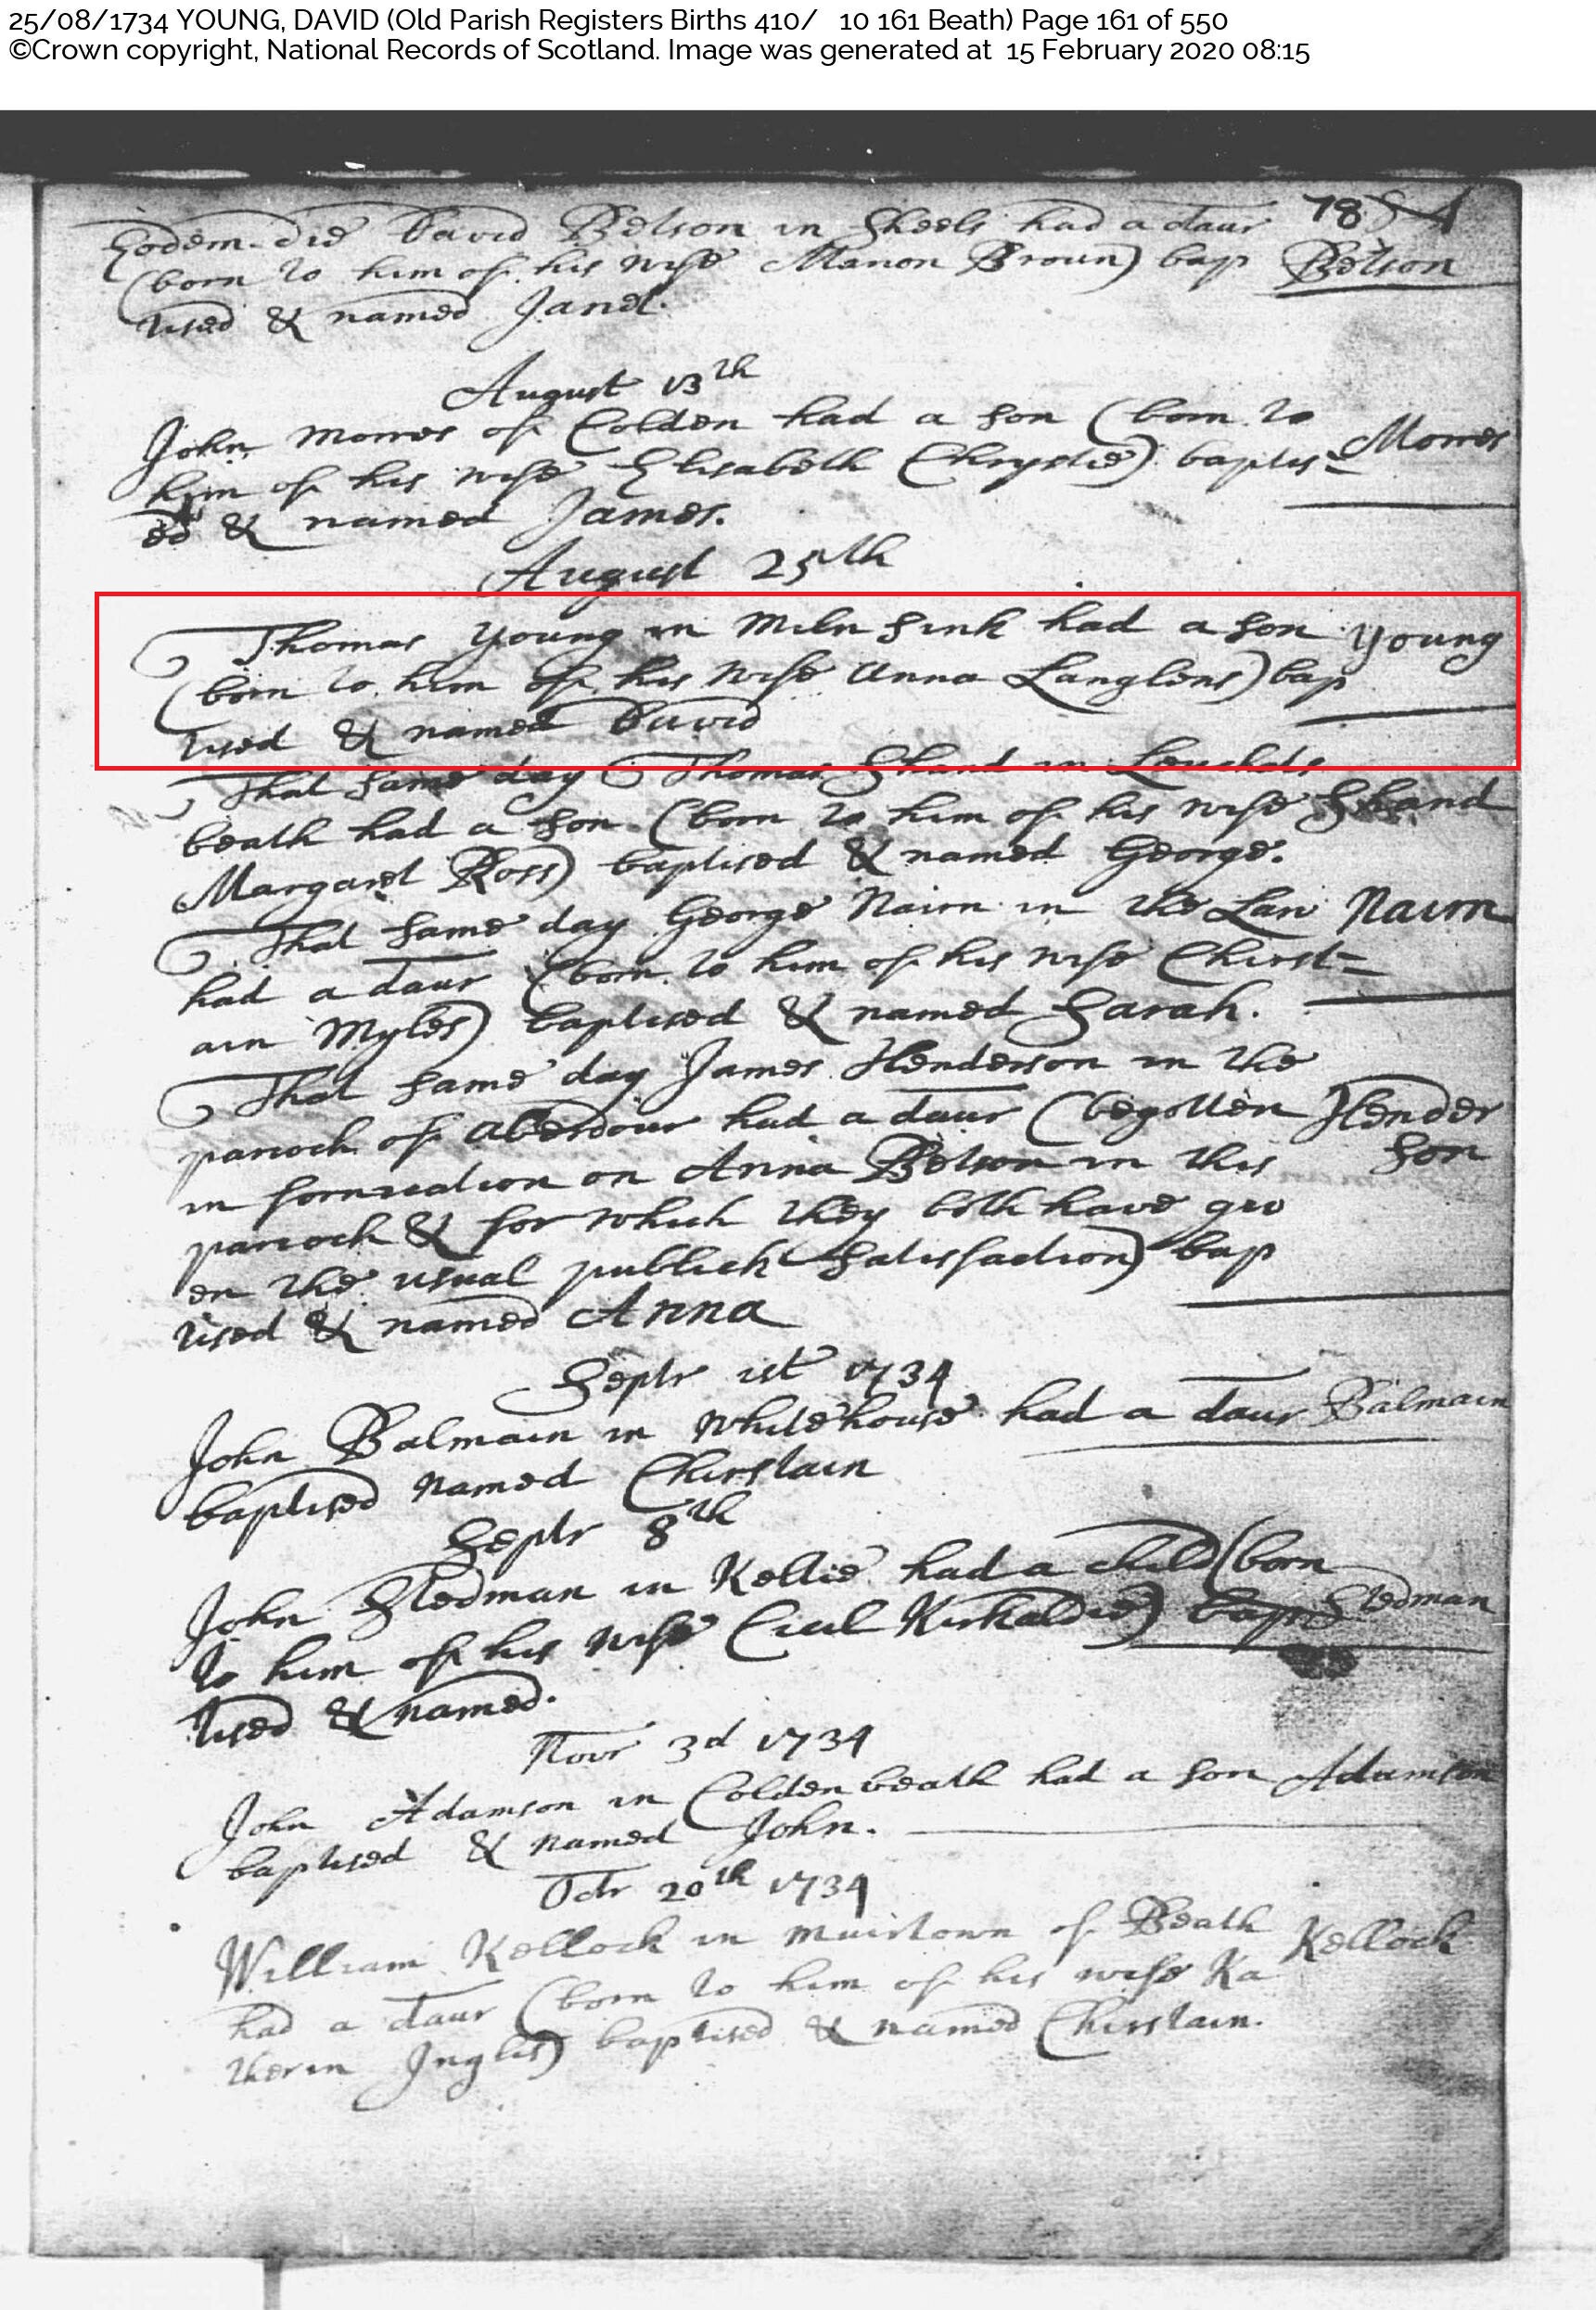 25/08/1734 YOUNG, DAVID (Old Parish Registers Births 410/ 10 161 Beath) Page 161 of 550
©Crown copyright, National Records of Scotland. Image was generated at 15 February 2020 08:15
78
Eodem die David Betson in Sheels had a daur
(born to him of his wife Marion Broun) bap Betson
tised & named Janet.
August 13th
John Morres of Colden had a son (born to
him of his wife Elisabeth Chrystie) baptis= Morres
ed & named James.
August 25th
Thomas Young in Miln Sink had a son Young
(born to him of his wife Anna Langlens) bap
tised & named David
That same day Thomas Shand in Leuchats
beath had a son (born to him of his wife Shand
Margaret Ross) baptised & named George.
That same day George Nairn in the Law Nairn
had a daur (born to him of his wife Christ=
ain Myles) baptised & named Sarah.
That same day James Henderson in the
parioch of Aberdour had a daur (begotten Hender
in fornication on Anna Betson in this son
parioch & for which they both have giv
en the usual publick Satisfaction) bap
tised & named Anna
Septr 1st 1734
John Balmain in Whitehouse had a daur Balmain
baptised named Chirstain
Septr 8th
John Stedman in Kellie had a child (born
to him of his wife Cicil Kirkaldie) bap Stedman
tised & named.
Novr 3d 1734
John Adamson in Coldenbeath had a son Adamson
baptised & named John.
Octr 20th 1734
William Kellock in Muirtown of Beath Kellock
had a daur (born to him of his wife Ka
therin Inglis) baptised & named Chirstain.